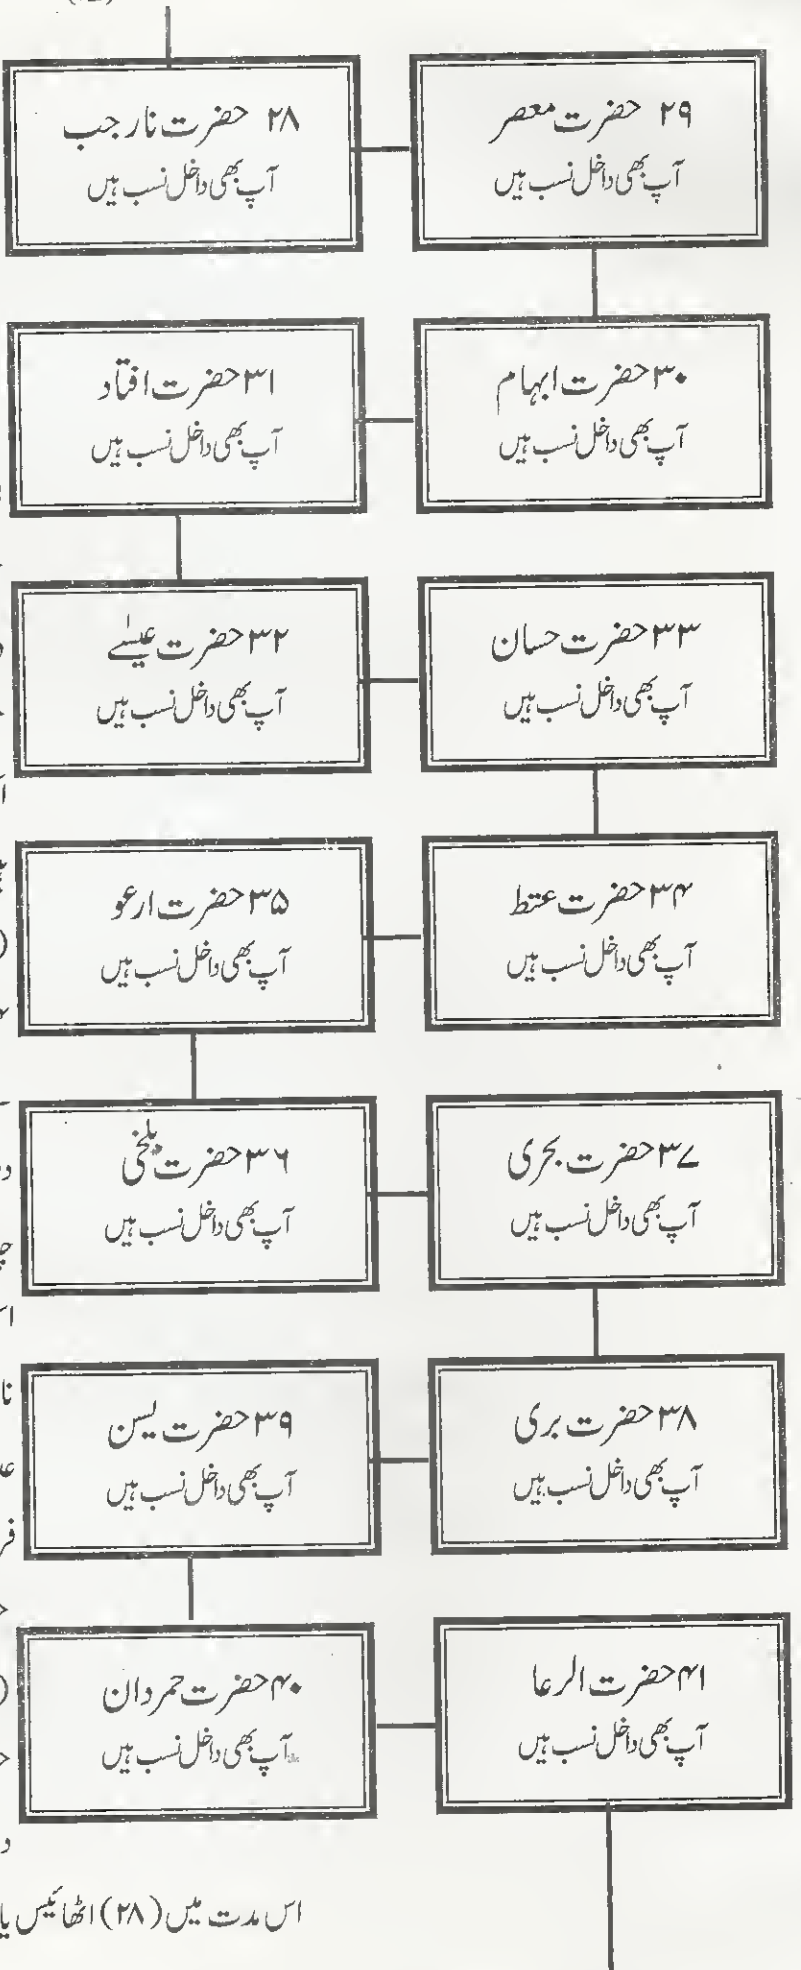 ۲۸ حضرت نارجب
آپ بھی داخل نسب ہیں
۲۹ حضرت معصر
آپ بھی داخل نسب ہیں
۳۰ حضرت ابہام
آپ بھی داخل نسب ہیں
۳۱ حضرت افتاد
آپ بھی داخل نسب ہیں
۳۲ حضرت عیسےٰ
آپ بھی داخل نسب ہیں
۳۳ حضرت حسان
آپ بھی داخل نسب ہیں
۳۴ حضرت عتط
آپ بھی داخل نسب ہیں
۳۵ حضرت ارعو
آپ بھی داخل نسب ہیں
۳۶ حضرت یلخی
آپ بھی داخل نسب ہیں
۳۷ حضرت بحری
آپ بھی داخل نسب ہیں
۳۸ حضرت بری
آپ بھی داخل نسب ہیں
۳۹ حضرت یسن
آپ بھی داخل نسب ہیں
۴۰ حضرت حمردان
آپ بھی داخل نسب ہیں
۴۱ حضرت الرعا
آپ بھی داخل نسب ہیں
اس مدت میں (۲۸) اٹھائیس یا